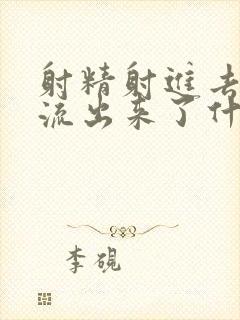 射精射进去
流出来了什
李砚